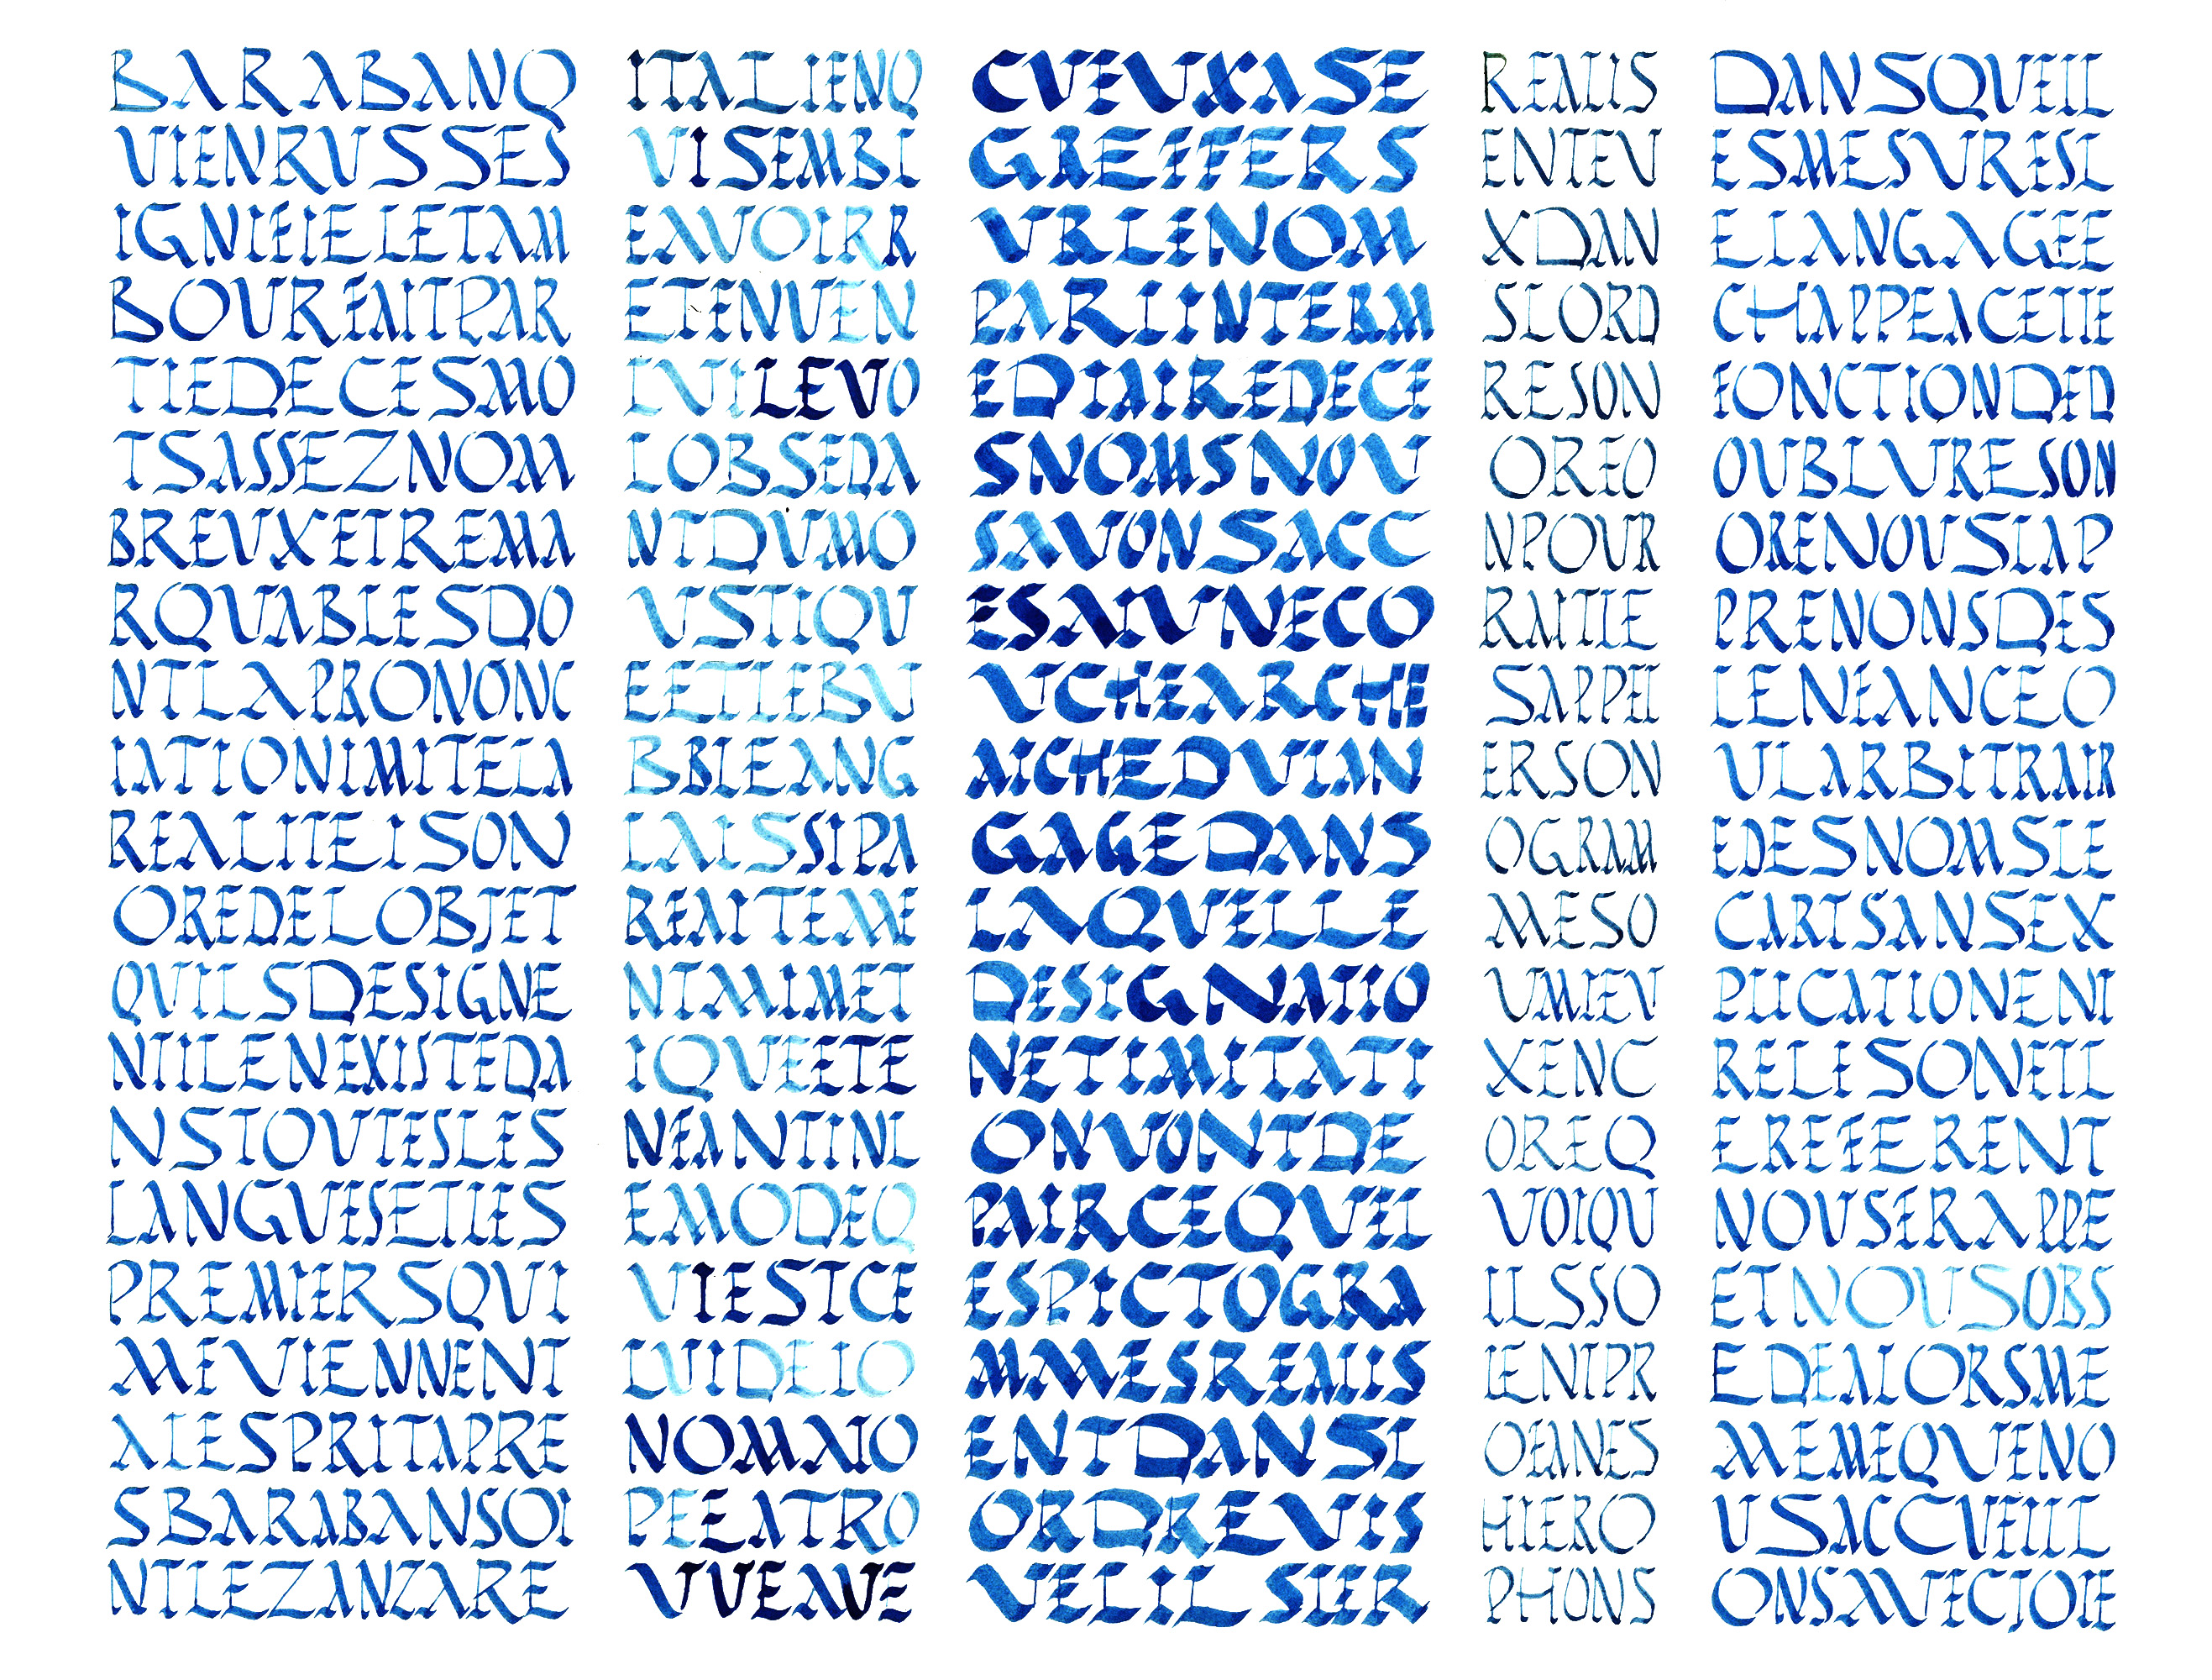 BARABANQ
UIENRUSSES
IGNIFIELETAM
BOURFAITPAR
TIEDECESMO
TSASSEZNOM
BREUXETREMA
RQUABLESDO
NTLAPRONONC
IATIONIMITELA
REALITEISON
OREDELOBJET
QUILSDESIGNE
NTILENEXISTEDA
NSTOUTESLES
LANGUESETLES
PREMIERSQUI
MEVIENNENT
ALESPRITAPRE
SBARABANSOI
NTLEZANZARE
ITALIENQ
UISEMBL
EAVOIRR
ETENUEN
LUILEVO
LOBSEDA
NTDUMO
USTIQU
EETLEBU
BBLEANG
LAISSIPA
RFAITEME
NTMIMET
IQUEETE
NEANTINL
EMODEQ
UIESTCE
LUIDELO
NOMATO
PEEATRO
UVEAVE
CUEUXASE
GREFFERS
URLENOM
PARLINTERM
EDIAIREDECE
SNOMSNOU
SAVONSACC
ESAUNECO
UCHEARCHE
AICHEDULAN
GAGEDANS
LAQUELLE
DESIGNATIO
NETIMITATI
ONVONTDE
PAIRCEQUEL
ESPICTOGRA
MMESREALIS
ENTDANSL
ORDREVIS
UELILSLER
REALIS
ENTEU
XDAN
SLORD
RESON
OREO
NPOUR
RAITLE
SAPPEL
ERSON
OGRAM
MESO
UMIEU
XENC
OREQ
UOIQU
ILSSO
IENTPR
OFANES
HIERO
PHONS
DANSQUELL
ESMESURESL
ELANGAGEE
CHAPPEACETTE
FONCTIONDED
OUBLURESON
ORENOUSLAP
PRENONSDES
LENEANCEO
ULARBITRAIR
EDESNOMSLE
CARTSANSEX
PLICATIONENT
RELESONETL
EREFERENT
NOUSFRAPPE
ETNOUSOBS
EDEALORSME
MEMEQUENO
USACCUEILL
ONSAVECJOIE